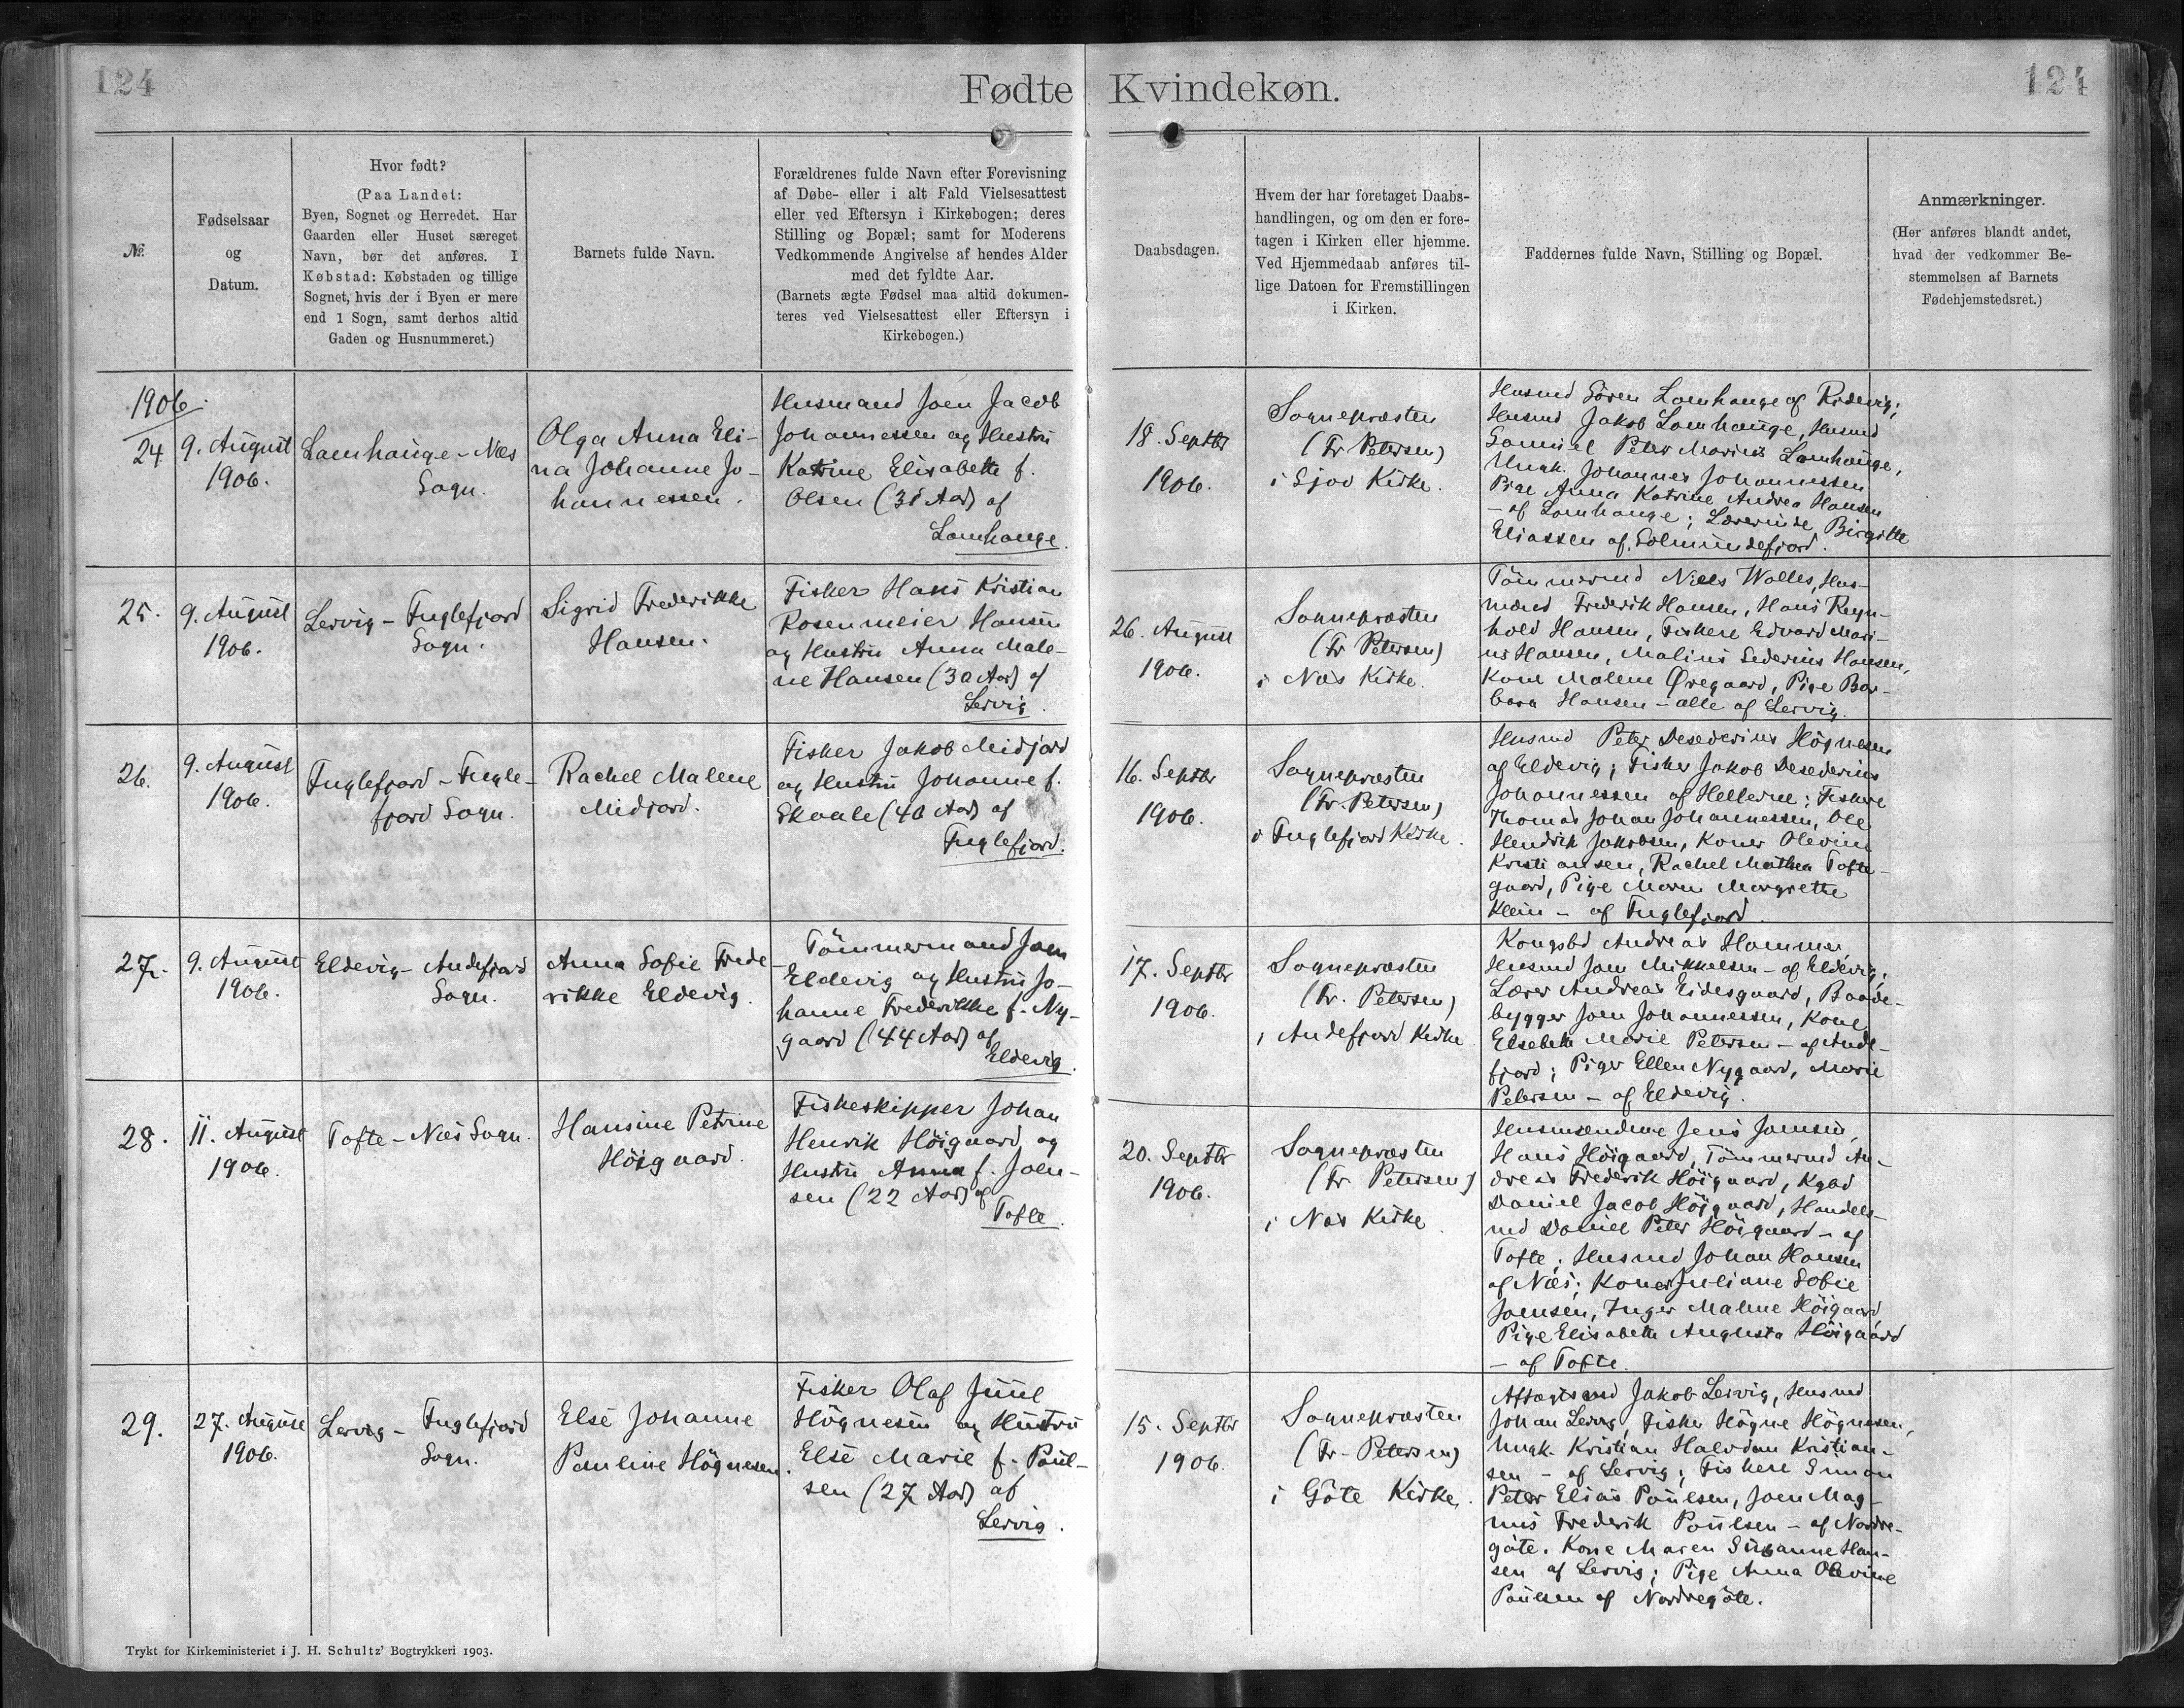 124
Fødte Kvindekøn.
124
№
Fødselsaar
og
Datum.
Hvor født?
(Paa Landet:
Byen, Sognet og Herredet. Har
Gaarden eller Huset særeget
Navn, bør det anføres. I
Købstad: Købstaden og tillige
Sognet, hvis der i Byen er mere
end 1 Sogn, samt derhos altid
Gaden og Husnummeret.)
Barnets fulde Navn.
Forældrenes fulde Navn efter Forevisning
af Døbe- eller i alt Fald Vielsesattest
eller ved Eftersyn i Kirkebogen; deres
Stilling og Bopæl; samt for Moderens
Vedkommende Angivelse af hendes Alder
med det fyldte Aar.
(Barnets ægte Fødsel maa altid dokumen-
teres ved Vielsesattest eller Eftersyn i
Kirkebogen.)
Daabsdagen.
Hvem der har foretaget Daabs-
handlingen, og om den er fore-
tagen i Kirken eller hjemme.
Ved Hjemmedaab anføres til-
lige Datoen for Fremstillingen
i Kirken.
Faddernes fulde Navn, Stilling og Bopæl.
Anmærkninger.
(Her anføres blandt andet,
hvad der vedkommer Be-
stemmelsen af Barnets
Fødehjemstedsret.)
1906.
24
9. August
1906.
Lamhauge - Næs
Sogn.
Olga Anna Eli-
na Johanne Jo-
hannessen.
Husmand Joen Jacob
Johannessen og Hustru
Katrine Elisabeth f.
Olsen (31 Aar) af
Lamhauge.
18. Septbr
1906.
Sognepræsten
(Fr Petersen)
i Sjov Kirke.
Husmd Sören Lamhauge af Ridevig;
Husmd Jakob Lamhauge, Husmd
Samuel Peter Marius Lamhauge,
Ungk. Johannes Johannessen
Pige Anna Katrine Andrea Hansen
- af Lamhauge; Lærerinde Birgitte
Eliassen af Solmundefjord.
25.
9. August
1906.
Lervig - Fuglefjord
Sogn.
Sigrid Frederikke
Hansen.
Fisker Hans Kristian
Rosenmeier Hansen
og Hustru Anna Male-
ne Hansen (30 Aar) af
Lervig.
26. August
1906.
Sognepræsten
(Fr Petersen)
i Næs Kirke.
Tömmermd Niels Wolles, Hus-
mænd Frederik Hansen, Hans Reyn-
hold Hansen, Fiskere Edvard Mari-
us Hansen, Malius Sederius Hansen,
Kone Malene Øregaard, Pige Bar-
bara Hansen - alle af Lervig.
26.
9. August
1906.
Fuglefjord - Fugle-
fjord Sogn.
Rachel Malene
Midjord.
Fisker Jakob Midjord
og Hustru Johanne f.
Skaale (40 Aar) af
Fuglefjord.
16. Septbr
1906.
Sognepræsten
(Fr. Petersen)
i Fuglefjord Kirke.
Husmd Peter Desederius Högnesen
af Eldevig; Fisker Jakob Desederius
Johannessen af Hellerne; Fiskere
Thomas Johan Johannessen, Ole
Hendrik Jakobsen, Koner Olevine
Kristiansen, Rachel Mathea Tofte-
gaard, Pige Maren Margrethe
Klein - af Fuglefjord.
27.
9. August
1906.
Eldevig - Andefjord
Sogn.
Anna Sofie Frede
rikke Eldevig.
Tömmermand Joen
Eldevig og Hustru Jo-
hanne Frederikke f. Ny-
gaard (44 Aar) af
Eldevig.
17. Septbr
1906.
Sognepræsten
(Fr. Petersen)
i Andefjord Kirke
Kongsbd Andreas Hammer,
Husmd Joen Mikkelsen - af Eldevig;
Lærer Andreas Eidesgaard, Baade-
bygger Joen Johannessen, Kone
Elsebeth Marie Petersen - af Ande-
fjord; Piger Ellen Nygaard, Marie
Petersen - af Eldevig.
28.
11. August
1906.
Tofte - Næs Sogn.
Hansine Petrine
Höigaard.
Fiskeskipper Johan
Henrik Höigaard og
Hustru Anna f. Joen-
sen (22 Aar) af
Tofte.
20. Septbr
1906.
Sognepræsten
(Fr. Petersen)
i Næs Kirke
Husmændene Jens Joensen,
Hans Höigaard, Tömmermd An-
dreas Frederik Höigaard, Kgbd
Daniel Jacob Höigaard, Handels-
md Daniel Peter Höigaard - af
Tofte; Husmd Johan Hansen
af Næs; Koner Juliane Sofie
Joensen, Inger Malene Höigaard
Pige Elisabeth Augusta Höigaard
- af Tofte.
29.
27. August
1906.
Lervig - Fuglefjord
Sogn.
Else Johanne
Pauline Högnesen.
Fisker Olaf Juul
Högnesen og Hustru
Else Marie f. Poul-
sen (27 Aar) af
Lervig.
15. Septbr
1906.
Sognepræsten
(Fr. Petersen)
i Göte Kirke.
Aftægtsmd Jakob Lervig, Husmd
Johan Lervig, Fisker Högne Högnesen,
Ungk. Kristian Halvdan Kristian-
sen - af Lervig; Fiskere Simon
Peter Elias Poulsen, Joen Mag-
nus Frederik Poulsen - af Nordre-
göte. Kone Maren Susanne Han-
sen af Lervig; Pige Anna Olevine
Poulsen af Nordregöte.
Trykt for Kirkeministeriet i J. H. Schultz' Bogtrykkeri 1903.